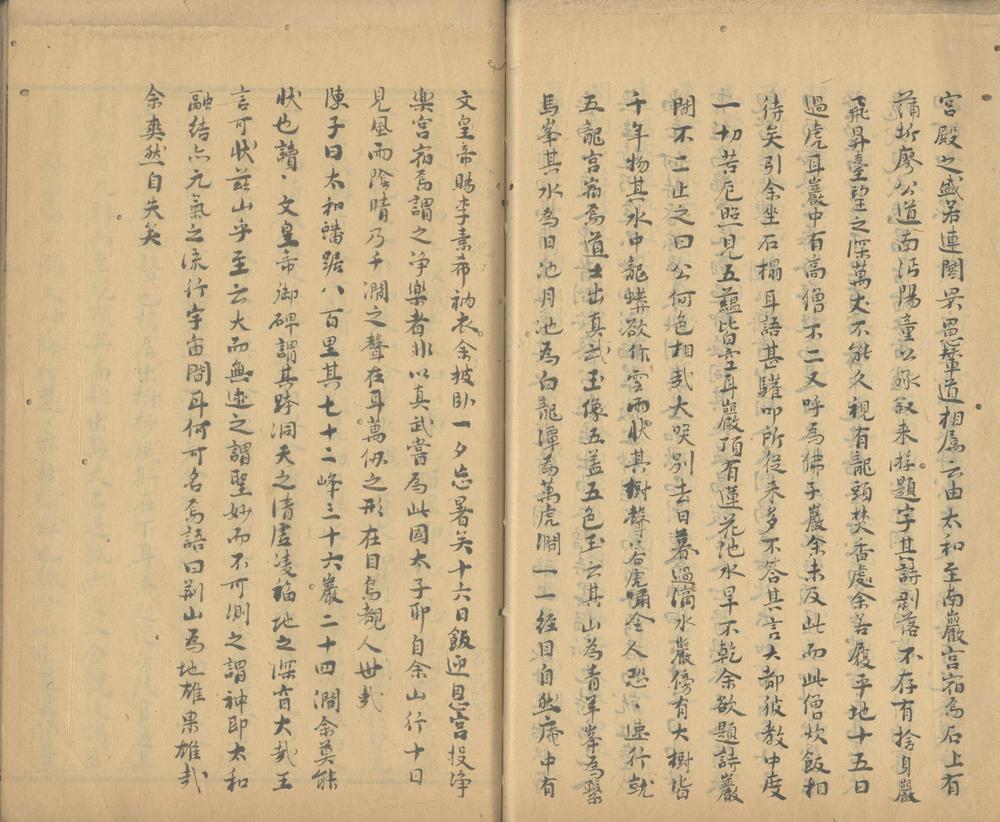 宮殿之盛若連閣吳邑輦道相屬云由太和至南巖宮宿焉石上有
蒲圻廖公道南沔陽童公承敘来游題字其詩剥落不存有捨身巖
飛昇臺望之深萬丈不能久視有龍頭焚香處余若履平地十五日
過虎耳巖中有高僧不二又呼為佛子巖余未及此而此僧炊飯相
待矣引余坐石榻耳語甚驩叩所従来多不答其言大都彼教中度
一切苦厄照見五蘊皆空耳巖頂有蓮花池水旱不乾余欲題詩巖
間不二止之曰公何色相哉大咲別去日暮過滴水巖傍有大樹皆
千年物其水中龍蟒欲作雲雨状其樹聲若虎嘯令人恐〻速行就
五龍宫宿焉道士出真武玉像五盖五色玉云其山為青羊峯為繫
馬峯其水為日池月池為白龍潭為萬虎澗一一経目自然庵中有
文皇帝賜李素希衲衣余披卧一夕忘暑矣十六日飯迎恩宫投净
樂宫宿焉謂之净樂者非以真武嘗為此國太子耶自余山行十日
見風而陰晴乃千澗之聲在耳萬仭之形在目烏覩人世哉
陳子曰太和蟠踞八百里其七十二峰三十六巖二十四澗余莫能
状也讀〻文皇帝御碑謂其跨洞天之清虚凌福地之深育大哉王
言可状兹山乎至云大而無迹之謂聖妙而不可測之謂神即太和
融結亦元氣之流行宇宙間耳何可名焉語曰荆山為地雄果雄哉
余爽然自失矣